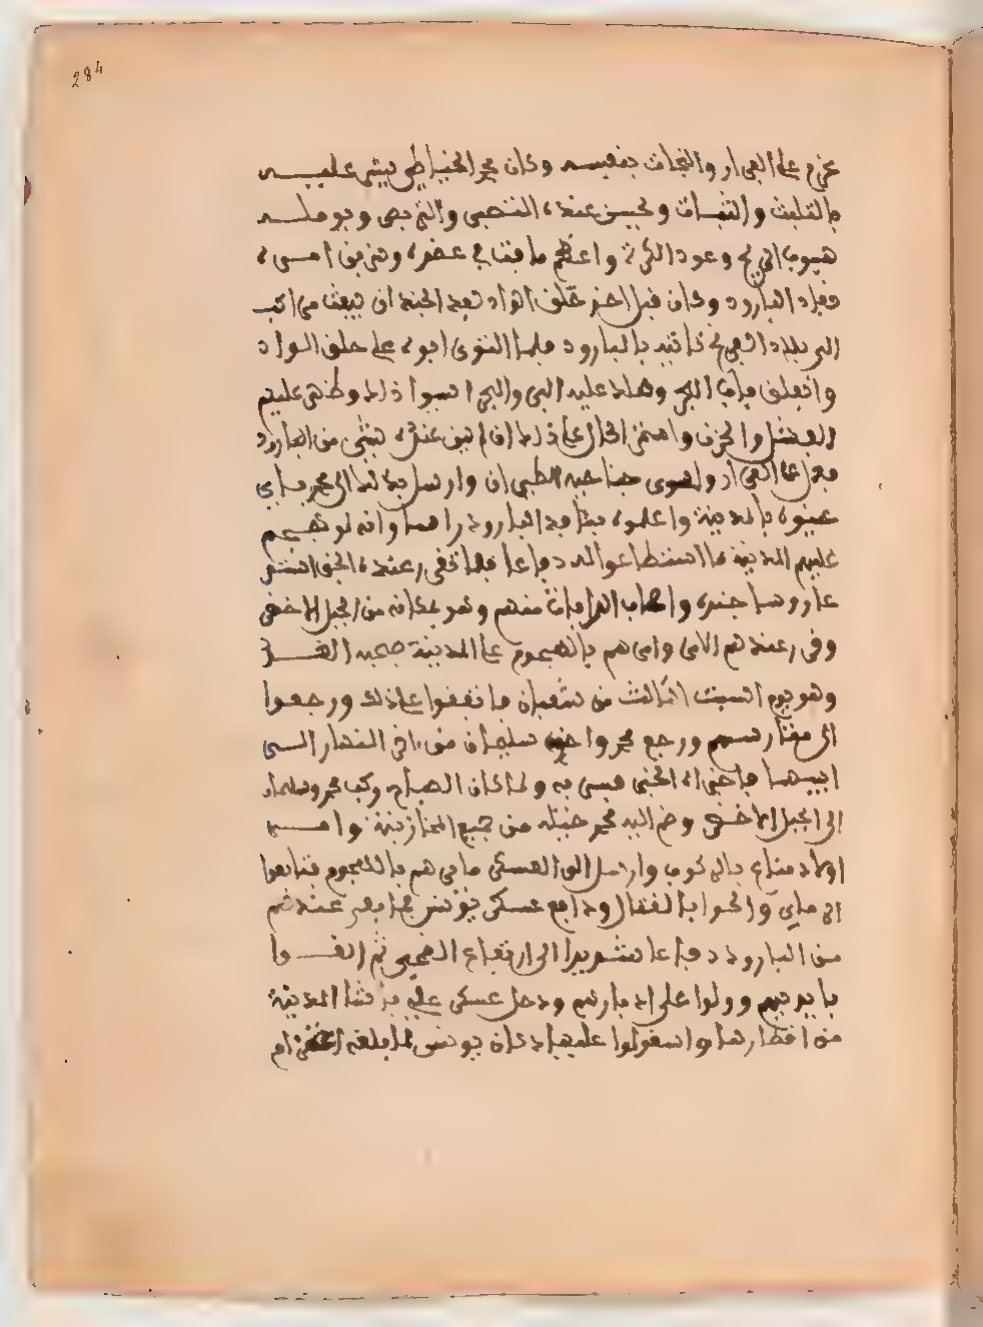 284
عزم على الفرار والنجاة بنفسه وكان محمد الخياطي يشير عليه
بالتلبث والثبات ويحسن عنده التصبر والتربص ويومله
هبوب الريح وعود الكرة واعظم ما فت في عضده
نفاد البارود وكان قبل اخذ حلق الواد بعد الجند ان يبعث مراكب
الى بلاد تاتيه بالبارود فلما استوى ابوه على حلق الواد
وانغلق باب البحر وملك عليه البر والبحر ايسوا ذلك وظهر عليهم
الفشل والحزن واستمر الحال على ذلك الى ان لم يبق عنده شيء من البارود
فعول على الفرار وارسل بذلك الى محمد باي
عيونه بالمدينة واعلموه بنفاد البارود راسا وانه لو هجم
عليهم المدينة ما استطاعوا له دفاعا فلما تقرر عنده الخبر استشار
روسا جنده واصحاب الرايات منهم وهو بمكانه من الجبل الاخضر
وقرر عندهم الامر وامرهم بالهجوم على المدينة صبيحة الغد
وهو يوم السبت الثالث من شعبان فاتفقوا على ذلك ورجعوا
الى متارسهم ورجع محمد واخوه سليمان من اخر النهار الى
ابيهما فاخبراه الخبر فسر به ولما كان الصباح ركب محمد وسليمان
الى الجبل الاخضر وضم اليه محمد خيله من جميع المخازنية وامر
اولاد مناع بالركوب وارسل الى العسكر فامرهم بالهجوم فتنابعوا
والحوا بالقتال ودافع عسكر تونس بما بقي عندهم
من البارود دفاعا شديدا الى ارتفاع الضحى ثم القوا
بايديهم وولوا على ادبارهم ودخل عسكر علي باشا المدينة
من اقطارها واستولوا عليها وكان يونس لما بلغه